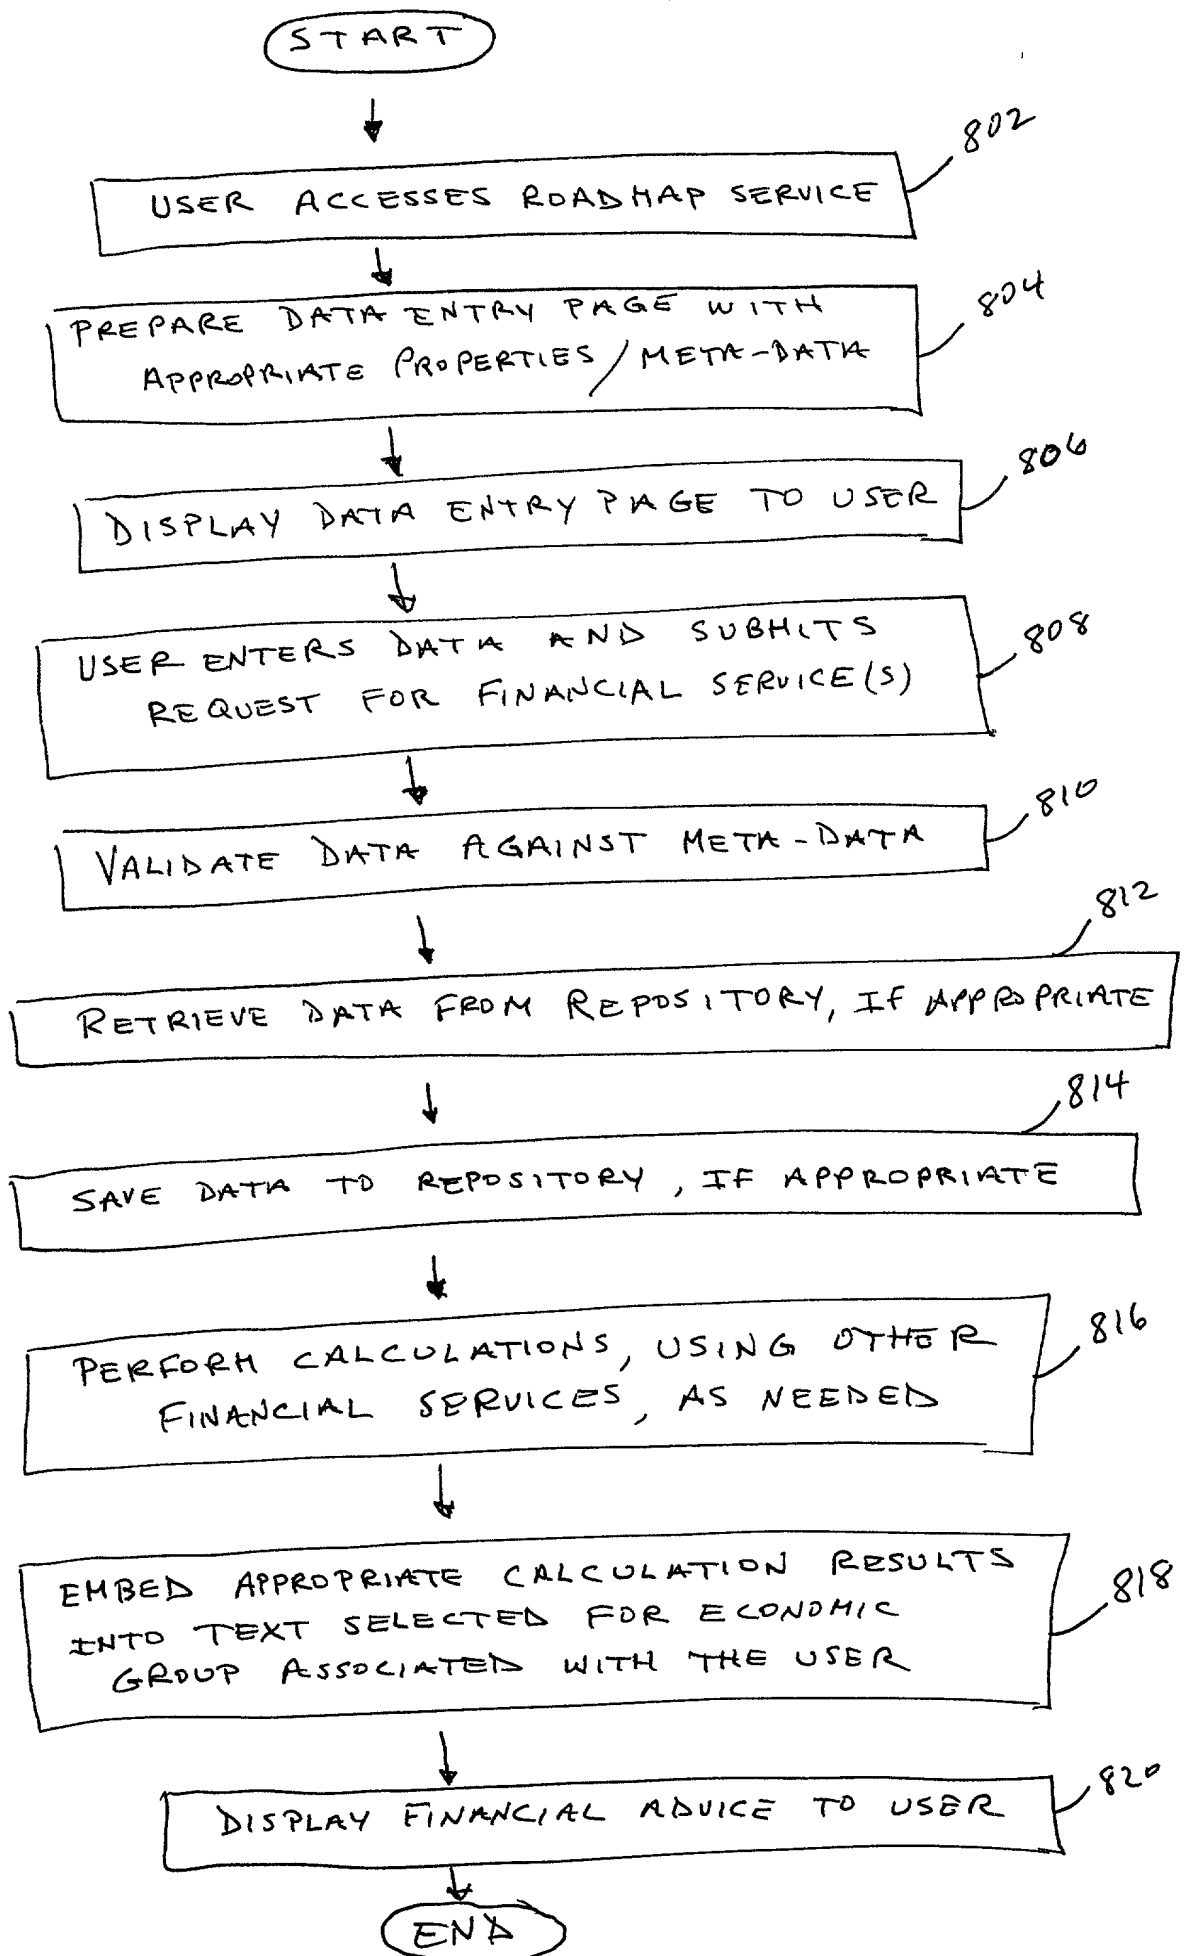 START
802
USER ACCESSES ROADMAP SERVICE
804
PREPARE DATA ENTRY PAGE WITH
APPROPRIATE PROPERTIES/META-DATA
806
DISPLAY DATA ENTRY PAGE TO USER
808
USER ENTERS DATA AND SUBMITS
REQUEST FOR FINANCIAL SERVICE(S)
810
VALIDATE DATA AGAINST META-DATA
812
RETRIEVE DATA FROM REPOSITORY, IF APPROPRIATE
814
SAVE DATA TO REPOSITORY, IF APPROPRIATE
816
PERFORM CALCULATIONS, USING OTHER
FINANCIAL SERVICES, AS NEEDED
818
EMBED APPROPRIATE CALCULATION RESULTS
INTO TEXT SELECTED FOR ECONOMIC
GROUP ASSOCIATED WITH THE USER
820
DISPLAY FINANCIAL ADVICE TO USER
END